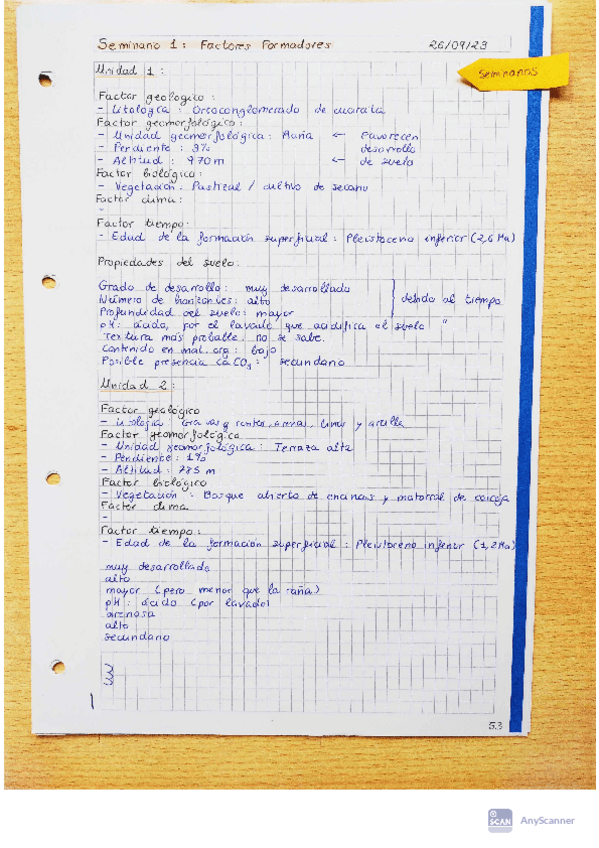 Seminario 1: Factores Formadores 26/09/23
Seminarios
Unidad 1:
Factor geológico:
- Litología: Ortoconglomerado de cuarcita
Factor geomorfológico:
- Unidad geomorfológica: Raña ← Favorecen
- Pendiente: 3% desarrollo
- Altitud: 970 m ← de suelo
Factor biológico:
- Vegetación: Pastizal / cultivo de secano
Factor clima:
-
Factor tiempo:
- Edad de la formación superficial: Pleistoceno inferior (2,6 Ma)
Propiedades del suelo:
Grado de desarrollo: muy desarrollado
Número de horizontes: alto debido al tiempo
Profundidad del suelo: mayor
pH: ácido, por el lavado que acidifica el suelo "
Textura más probable: no se sabe.
Contenido en mat. org: bajo
Posible presencia CaCO3: secundario
Unidad 2:
Factor geológico
- Litología: Gravas y cantos, arena, limos y arcilla
Factor geomorfológico
- Unidad geomorfológica: Terraza alta
- Pendiente: 1%
- Altitud: 785 m
Factor biológico
- Vegetación: Bosque abierto de encinas y matorral de coscoja
Factor clima
-
Factor tiempo:
- Edad de la formación superficial: Pleistoceno inferior (1,2 Ma)
muy desarrollado
alto
mayor (pero menor que la raña)
pH: ácido (por lavado)
arenosa
alto
secundario
53
SCAN AnyScanner